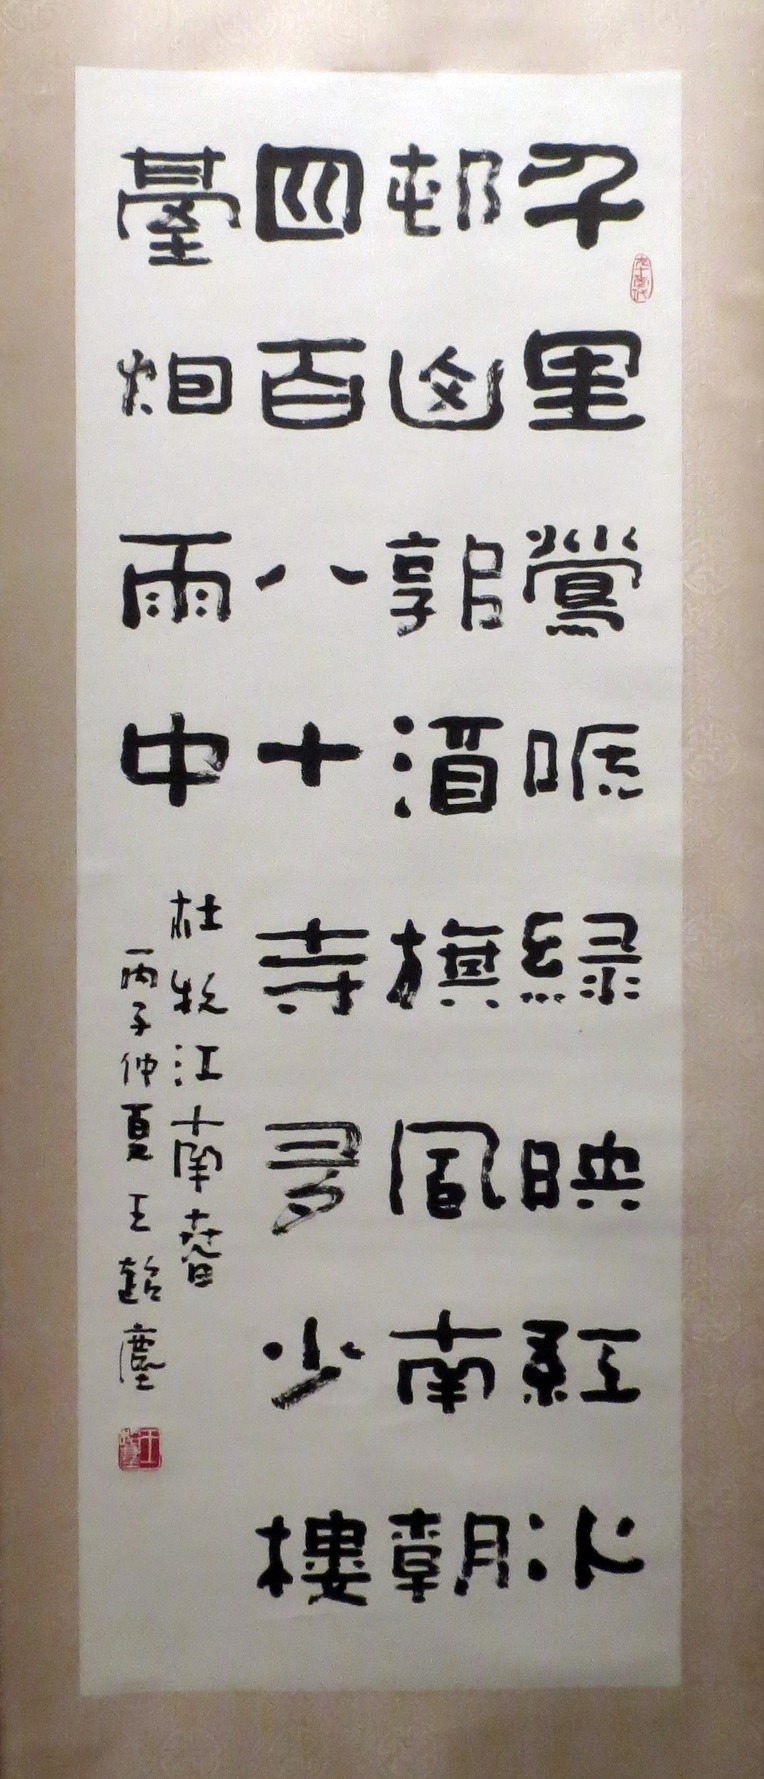 千里鶯啼綠映紅水
邨山郭酒旗風南朝
四百八十寺多少樓
臺烟雨中
杜牧江南春
丙子仲夏王超塵
九十年代